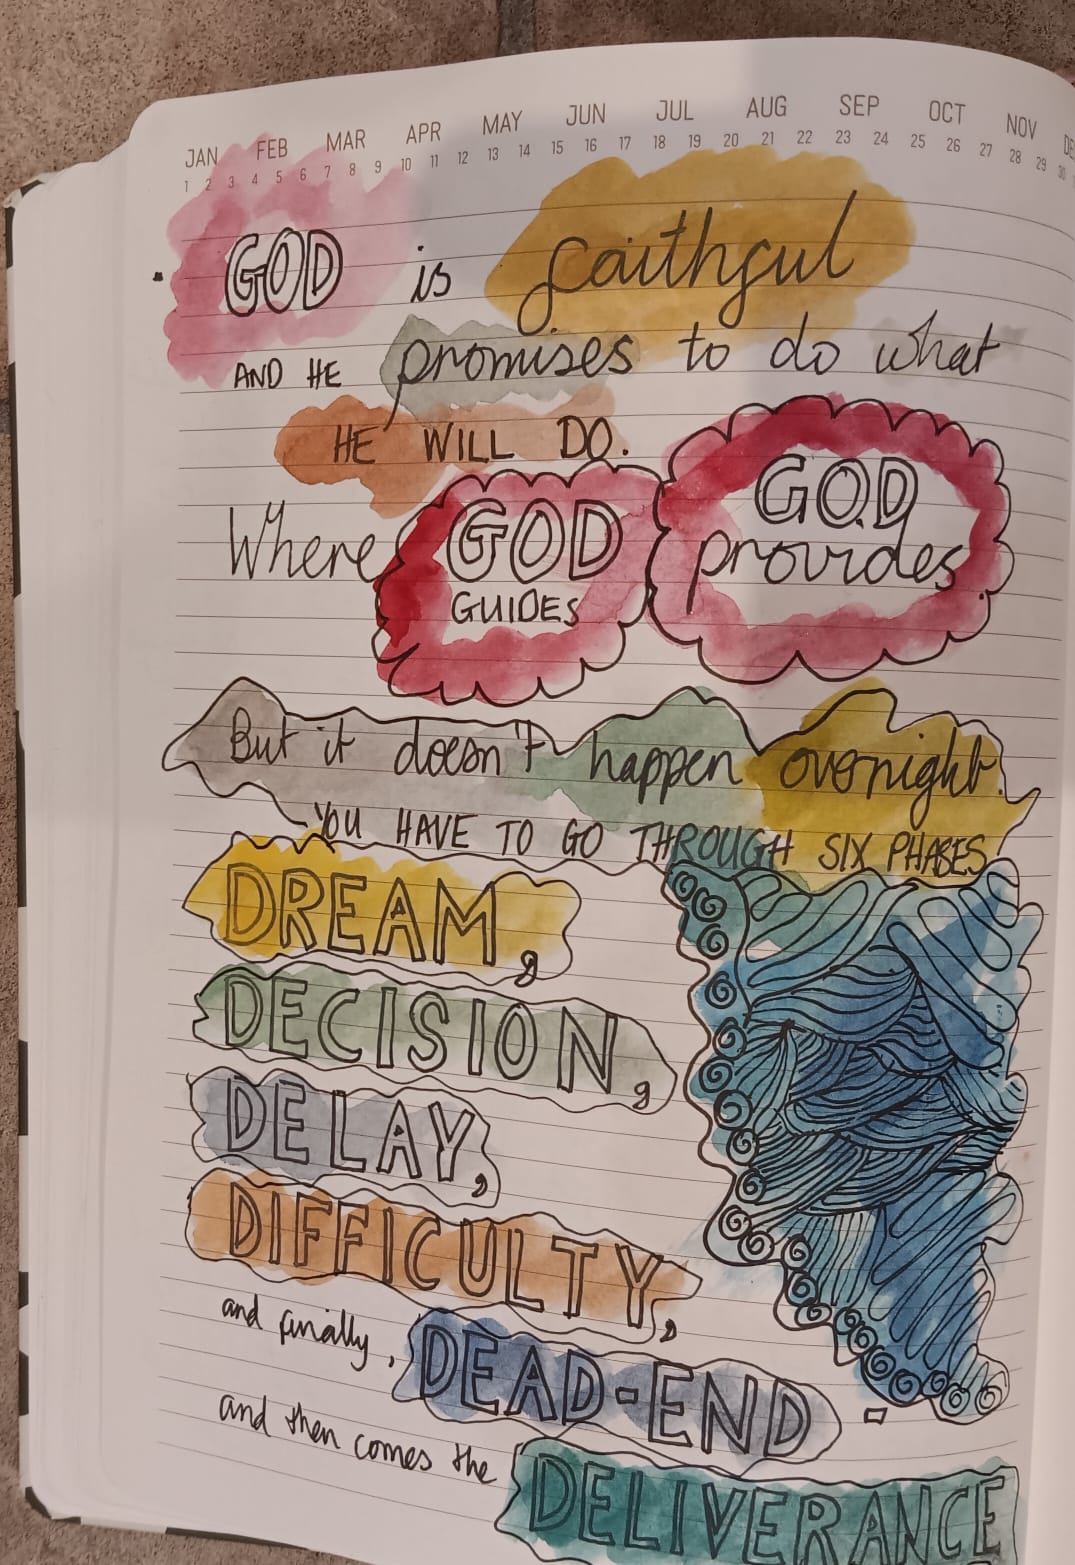 JAN FEB MAR APR MAY JUN JUL AUG SEP OCT NOV DE
1 2 3 4 5 6 7 8 9 10 11 12 13 14 15 16 17 18 19 20 21 22 23 24 25 26 27 28 29 30
GOD is faithful
AND HE promises to do what
HE WILL DO.
Where GOD GUIDES GOD provides.
But it doesn't happen overnight.
YOU HAVE TO GO THROUGH SIX PHASES
DREAM,
DECISION,
DELAY,
DIFFICULTY,
and finally, DEAD-END.
and then comes the
DELIVERANCE